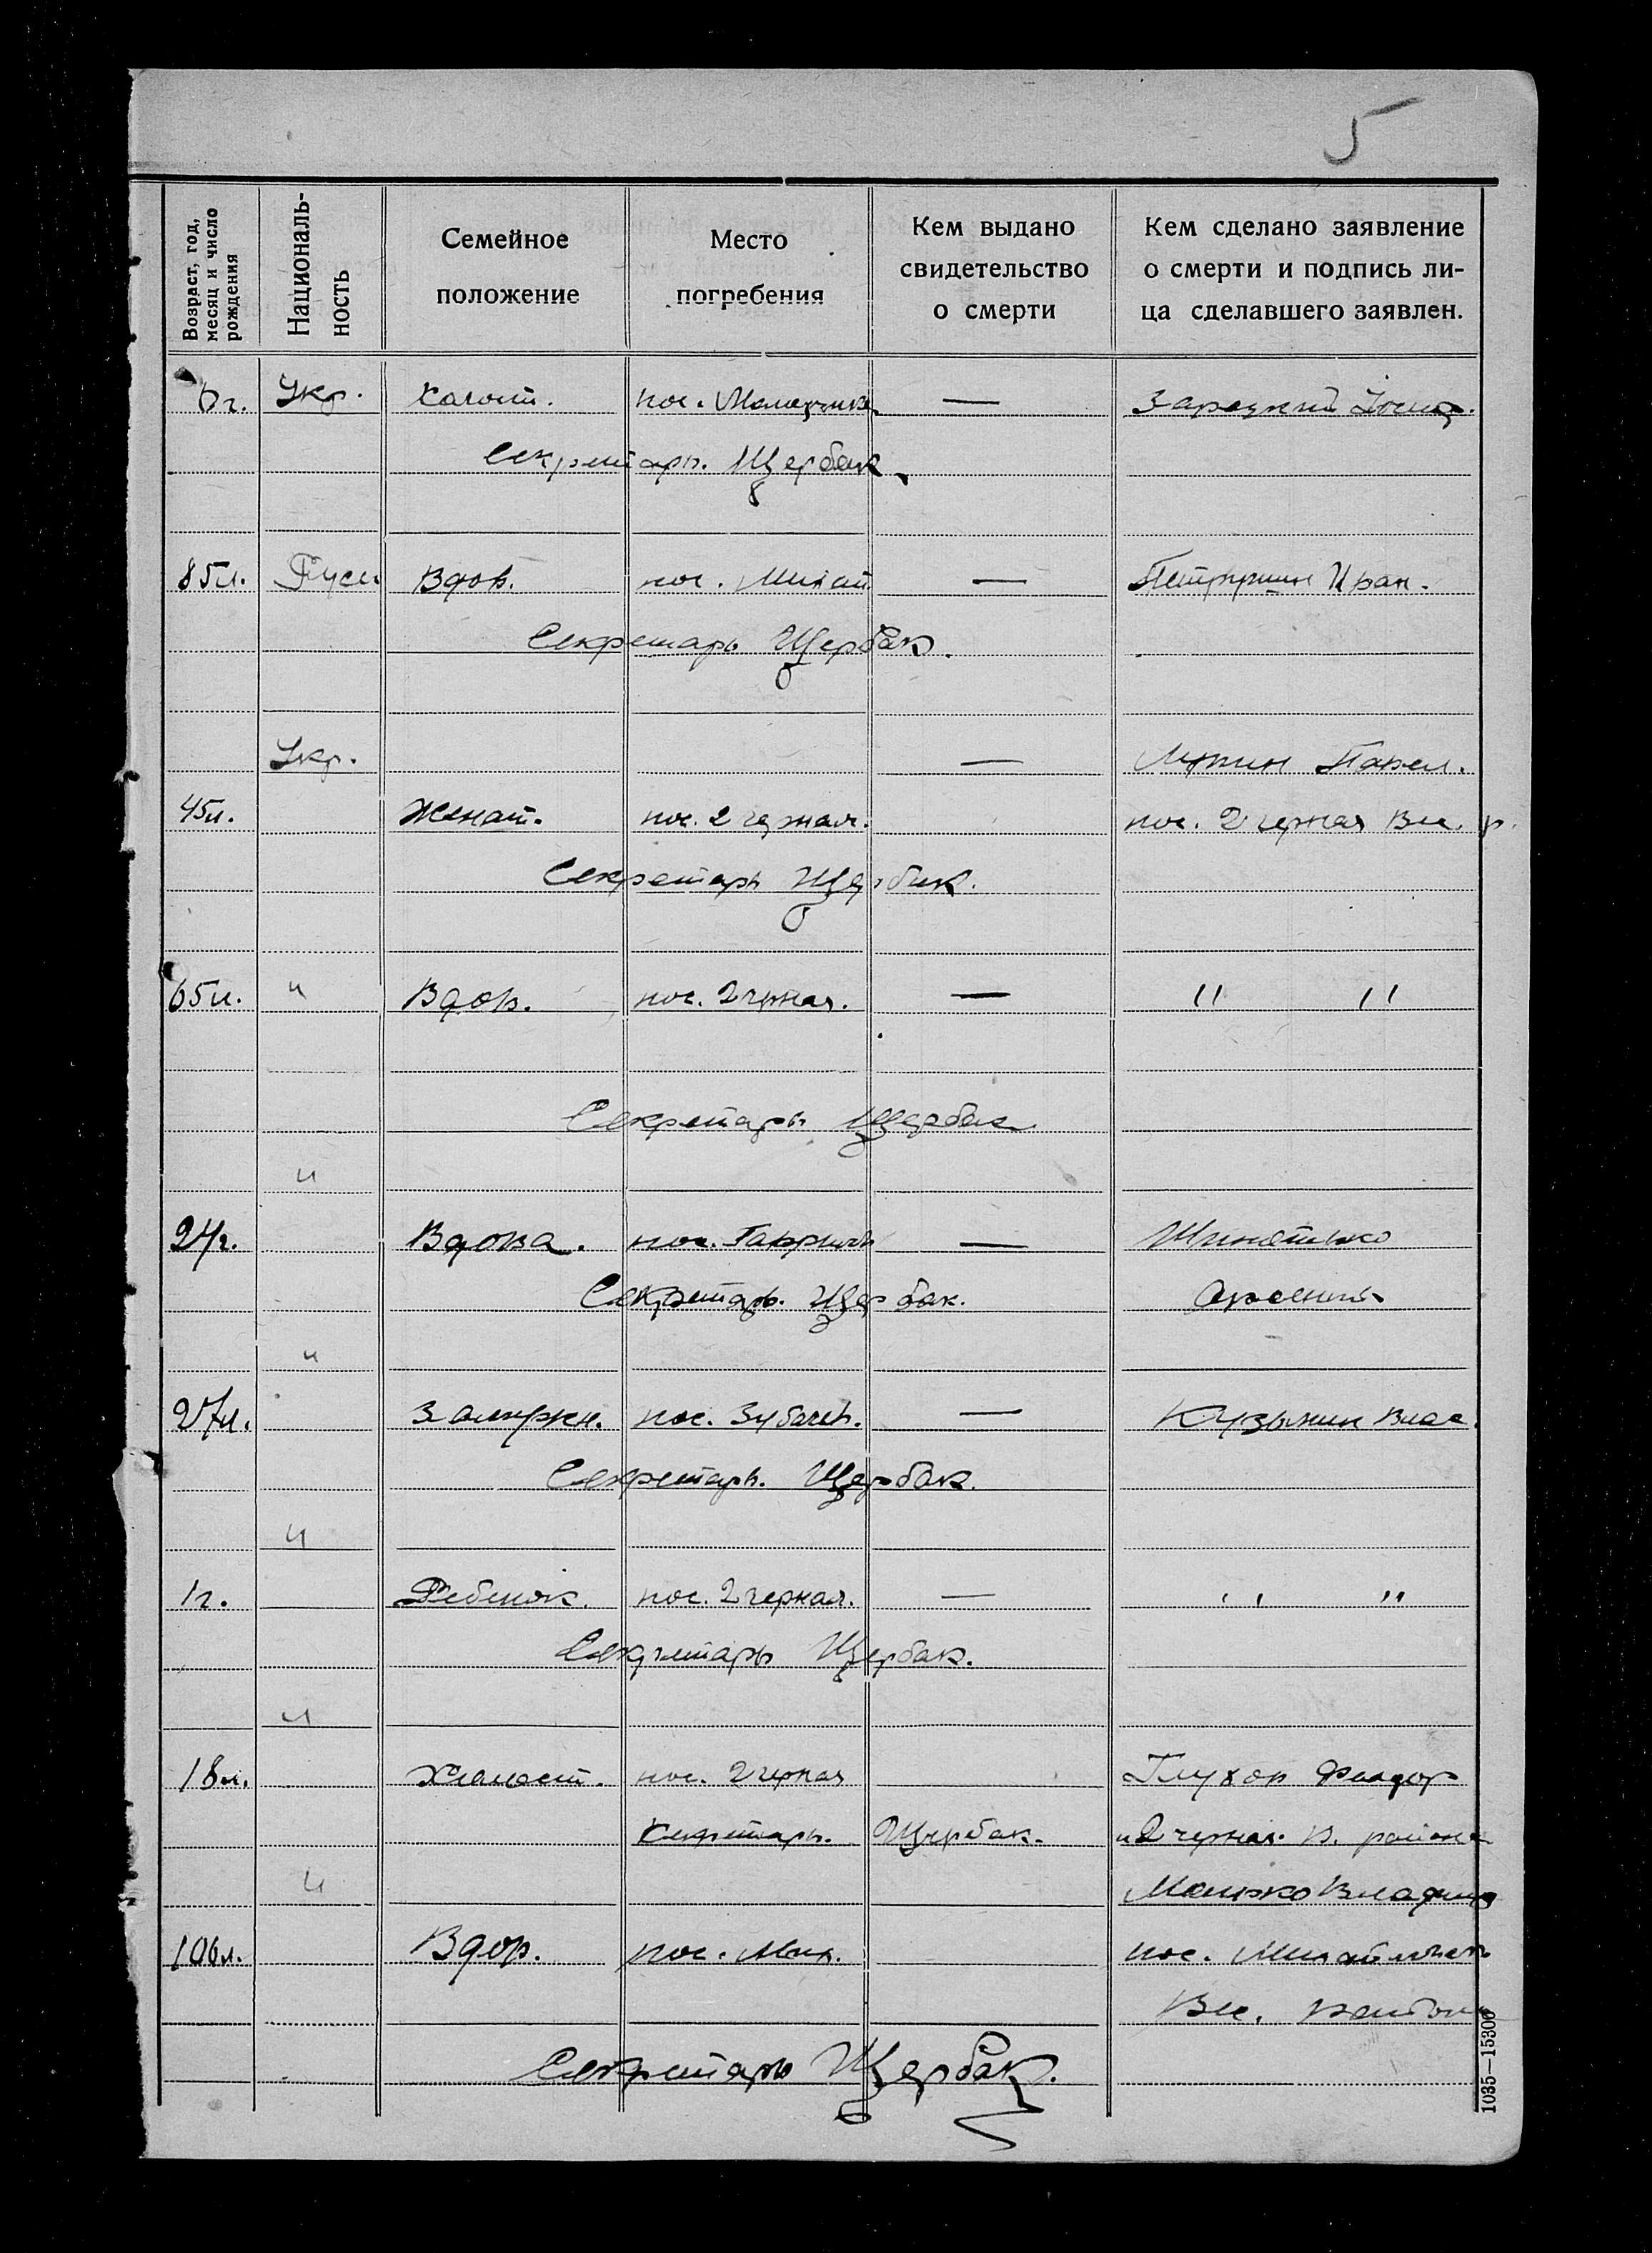 5
Возраст, год, месяц и число рождения
Националь-
ность
Семейное
положение
Место
погребения
Кем выдано
свидетельство
о смерти
Кем сделано заявление
о смерти и подпись ли-
ца сделавшего заявлен.
Укр. пос. — Зарецкий
Секретарь. Щербак
85л. Русс Вдов. пос. Михай — Иван.
Секретарь Щербак.
Укр. — Павел.
45л. Женат. пос. 2 черная. пос. 2 черная Вл. р.
Секретарь Щербак.
65л. " Вдов. пос. 2 черная. — " "
Секретарь Щербак
"
24г. Вдова. пос. —
Секретарь. Щербак.
"
27л. Замужн. пос. — Кузьмин Влас.
Секретарь. Щербак.
"
1г. Ребенок. пос. 2 черная. — " "
Секретарь Щербак.
"
18л. Холост. пос. 2 черная Глухов Феодор
Секретарь. Щербак. 2 черная. В. района
" Владим
106л. Вдов. пос. Мих. пос.
Вл.
Секретарь Щербак.
1035—15300